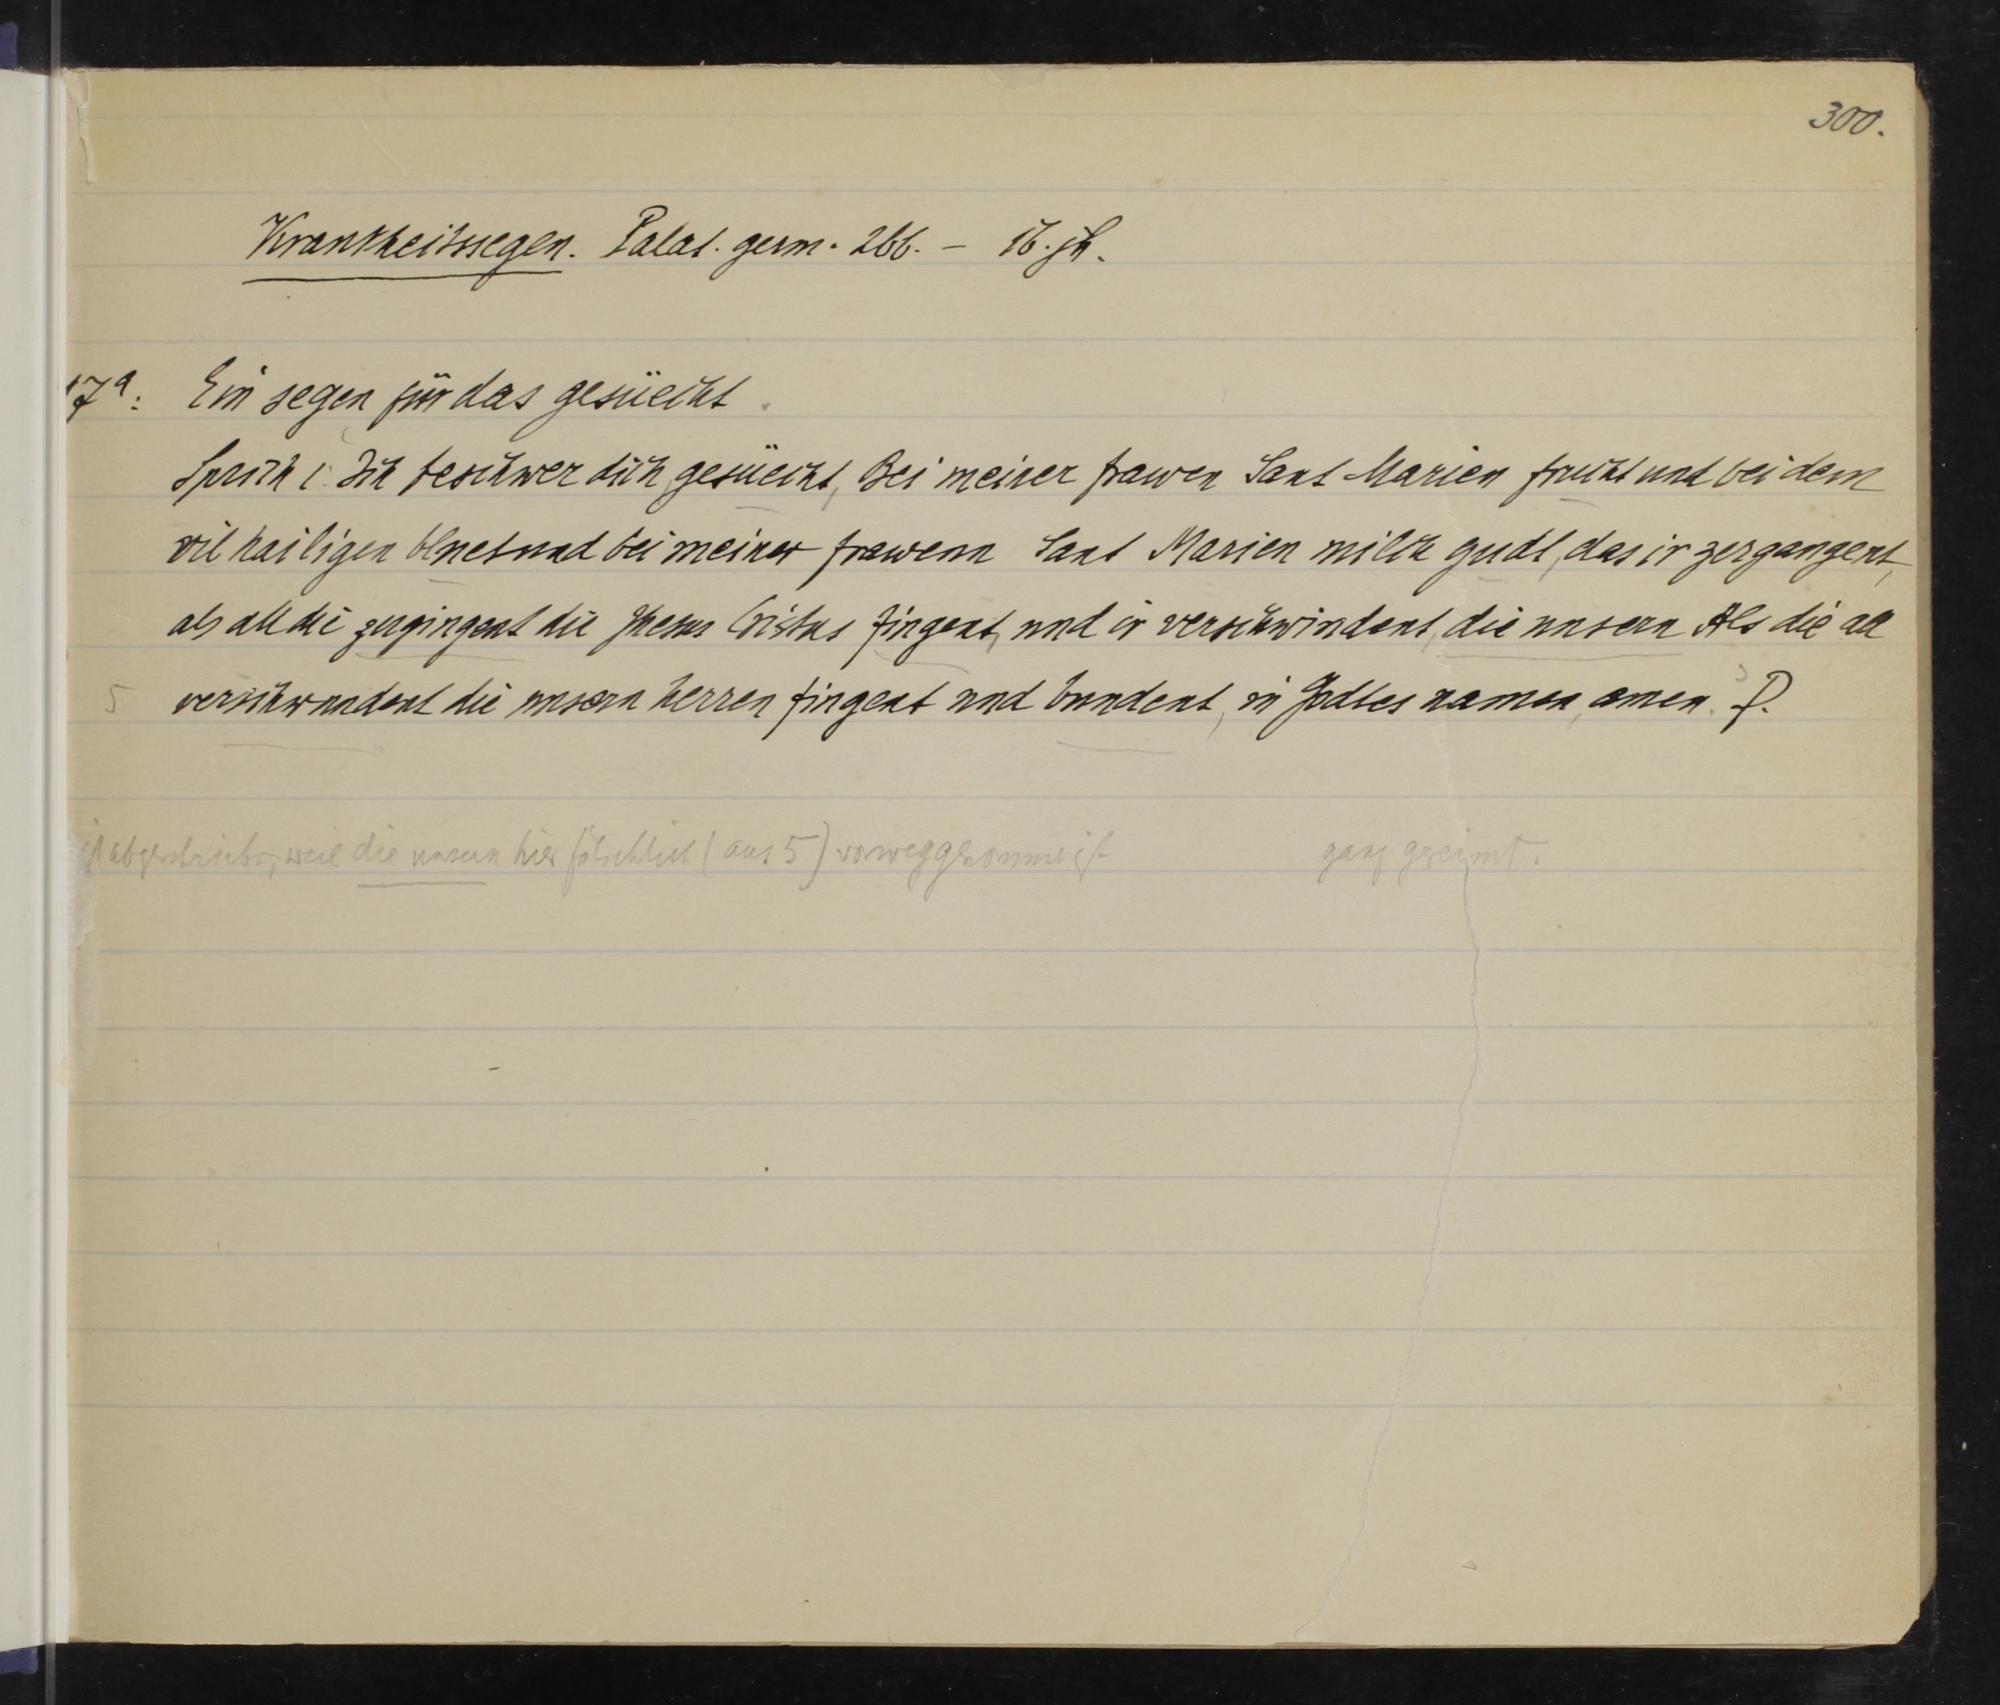 300.
Krankheitssegen. Palat. germ. 266. – 16. jh.
17ᵃ: Ein segen für das gesüecht
Sprich: Ich beschwer dich, gesüecht, Bei meiner frawen Sant Marien frucht und bei dem
vil hailigen bluet und bei meiner frawenn Sant Marien milch gudt, das ir zergangent,
als all die zergingent die Jhesus Cristus fingent, und ir verschwindent, die unsern Als die all
5 verschwundent die unsern herren fingent und bundent, in Godtes namen, amen.
abgeschrieben, weil die unsern hier fälschlich (aus 5) vorweggenommen ist ganz gereimt.